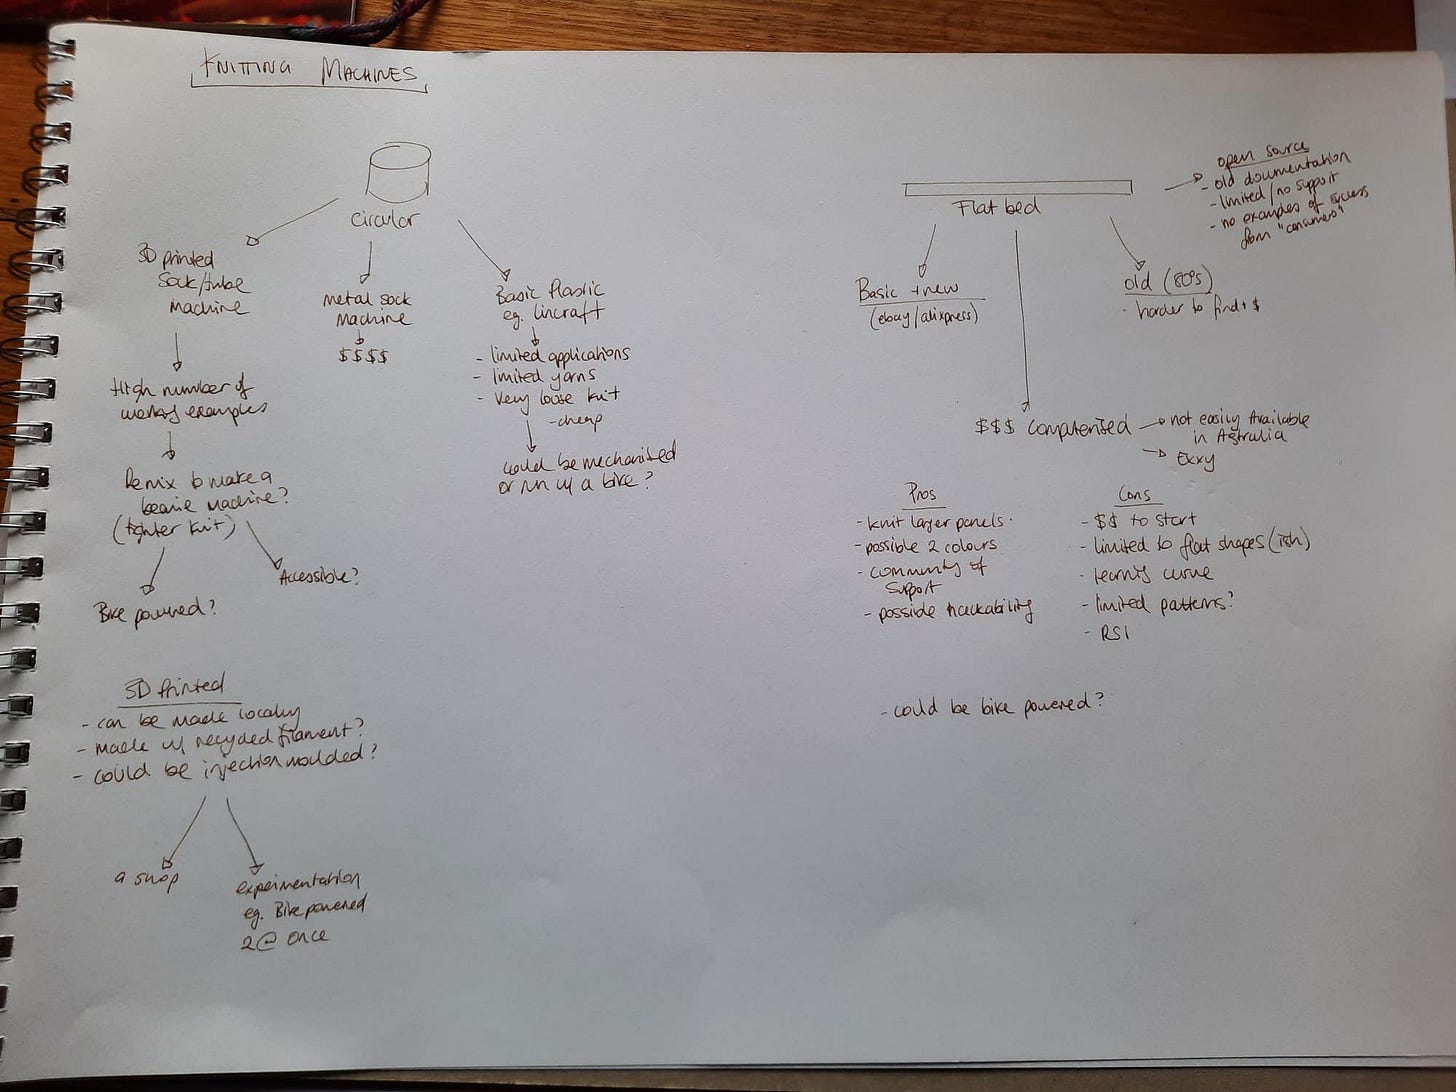 KNITTING MACHINES
circular
3D printed
Sock/tube
Machine
High number of
working examples
Remix to make a
beanie machine?
(tighter knit)
Bike powered?
Accessible?
Metal sock
Machine
$$$$
Basic Plastic
eg. lincraft
- limited applications
- limited yarns
- very loose knit
- cheap
could be mechanised
or run w/ a bike?
3D Printed
- can be made locally
- made w/ recycled filament?
- could be injection moulded?
a shop
experimentation
eg. Bike powered
2 @ once
Flat bed
open source
- old documentation
- limited/no support
- no examples of success
from "consumers"
Basic + new
(ebay/alixpress)
old (80s)
- harder to find + $
$$$ Computerised
not easily available
in Australia
Exxy
Pros
- knit larger panels.
- possible 2 colours
- community of
support
- possible hackability
Cons
- $$ to start
- limited to flat shapes (ish)
- learning curve
- limited patterns?
- RSI
- could be bike powered?